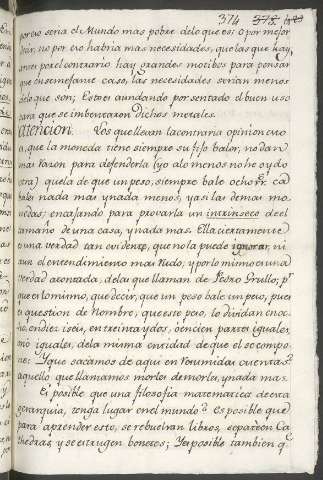 374 378.
por eso seria el Mundo mas pobre de lo que es; o por mejor
decir, no por eso habria mas necesidades, que las que hay,
antes por el contrario hay grandes motibos para pensar
que en semejante caso, las necesidades serian menos
delo que son; Esto es aundando por sentado el buen uso
para que se imbentaron dichos metales.
Atencion. Los que llevan la contraria opinion
a, que la moneda tiene siempre su fijo balor, no dan
mas razon para defenderla (yo alo menos no he oydo
otra) quela de que un peso, siempre bale ocho rr.
bales nada mas ynada menos, yasi las demas mo-
nedas; encajando para provarla un intrinseco de el
tamaño de una casa, ynada mas. Ella ciertamente
es una verdad tan evidente, que nola puede ignorar, ni
aun el entendimiento mas rudo, y por lo mismo es una
verdad acontada, delas que llaman de Pedro Grullo; pr.
que es lo mismo, que decir, que un peso bale un peso, pues
es question de Nombre, que ese peso, lo dividan en oc-
ho, en diez iseis, en treintaydos, ò en cien partes iguales,
nò iguales, dela misma entidad de que el se compo-
ne. Y que sacamos de aqui en resumidas cuentas?
aquello que llamamos morler de morler, ynada mas.
Es posible que una filosofia matematica de esta
gerarquia, tenga lugar en el mundo? Es posible que
para aprender esto, se rebuelvan libros, se paseen Ca-
thedras, y se estrugen bonetes; Yes posible tambien q.